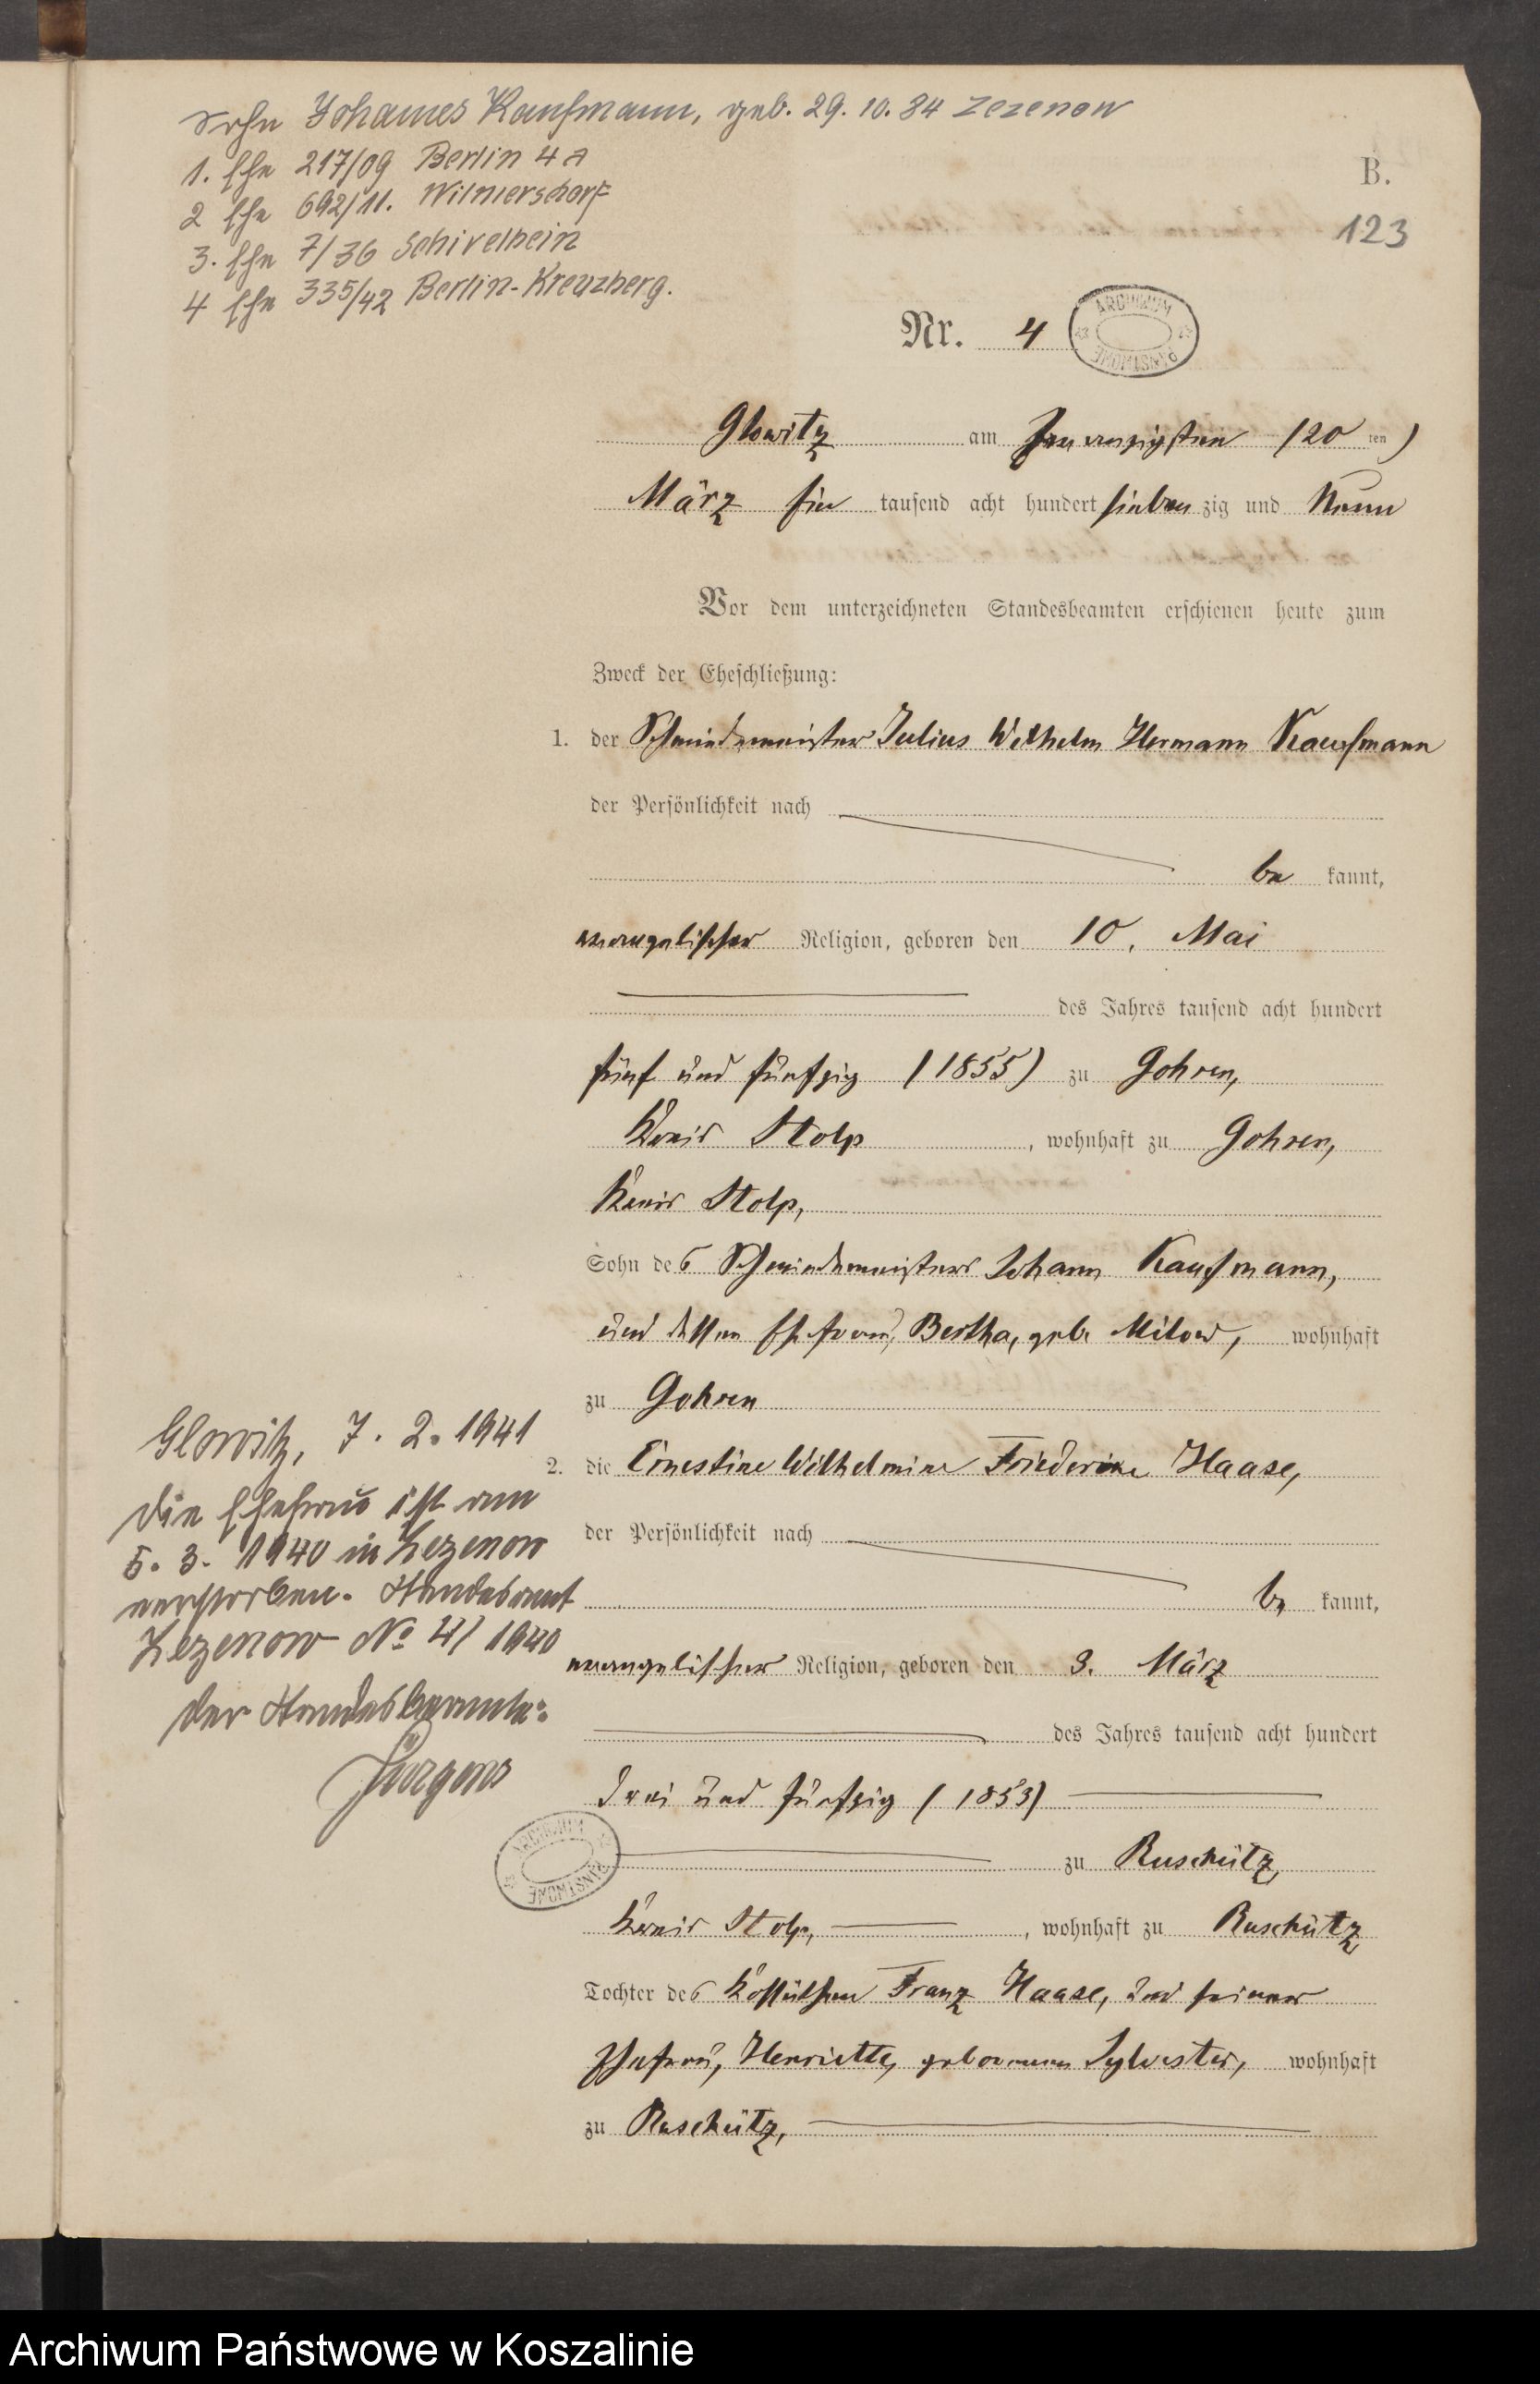 Sohn Johannes Kaufmann, geb. 29.10.84 Zezenow
1. Ehe 217/09 Berlin 4A
2 Ehe 692/11. Wilmersdorf
3. Ehe 7/36 Schivelbein
4 Ehe 335/42 Berlin-Kreuzberg.
B.
123
Nr. 4
ARCHIWUM PAŃSTWOWE
Glowitz am zwanzigsten (20 ten)
März ein tausend acht hundert sieben zig und Neun
Vor dem unterzeichneten Standesbeamten erschienen heute zum
Zweck der Eheschließung:
1. der Schmiedemeister Julius Wilhelm Hermann Kaufmann
der Persönlichkeit nach
be kannt,
evangelischer Religion, geboren den 10. Mai
des Jahres tausend acht hundert
fünf und fünfzig (1855) zu Gohren,
Kreis Stolp, wohnhaft zu Gohren,
Kreis Stolp,
Sohn des Schmiedemeisters Johann Kaufmann,
und dessen Ehefrau, Bertha, geb. Milow, wohnhaft
zu Gohren
2. die Ernestine Wilhelmine Friederike Haase,
der Persönlichkeit nach
be kannt,
evangelischer Religion, geboren den 3. März
des Jahres tausend acht hundert
drei und fünfzig (1853)
zu Ruschütz,
Kreis Stolp, wohnhaft zu Ruschütz,
Tochter des Kossäthen Franz Haase, und seiner
Ehefrau, Henriette, geborenen Sylvester, wohnhaft
zu Ruschütz,
Glowitz, 7.2.1941
Die Ehefrau ist am
5.3.1940 in Zezenow
verstorben. Standesamt
Zezenow No 4/1940
Der Standesbeamte:
Jürgens
ARCHIWUM PAŃSTWOWE
Archiwum Państwowe w Koszalinie